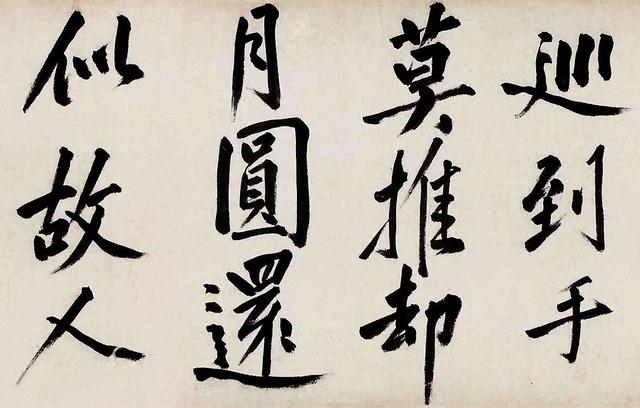 巡到手
莫推却
月圓還
似故人